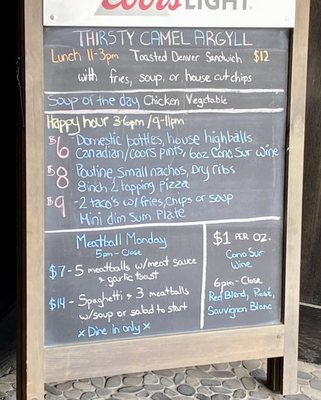 Coors LIGHT
THIRSTY CAMEL ARGYLL
Lunch 11-3pm Toasted Denver Sandwich $12
with fries, soup, or house cut chips
Soup of the day Chicken Vegetable
Happy hour 3-6pm / 9-11pm
$6 - Domestic bottles, house highballs
Canadian/Coors pints, 6oz Cono Sur Wine
$8 Poutine, Small nachos, Dry ribs
8 inch 2 topping pizza
$9 - 2 taco's w/ fries, Chips or soup
Mini dim Sum Plate
Meatball Monday
5pm - Close
$7 - 5 meatballs w/ meat sauce
& garlic toast
$14 - Spaghetti & 3 meatballs
w/ soup or salad to start
x Dine in only x
$1 PER OZ.
Cono Sur
Wine
6pm - Close
Red Blend, Rosé,
Sauvignon Blanc